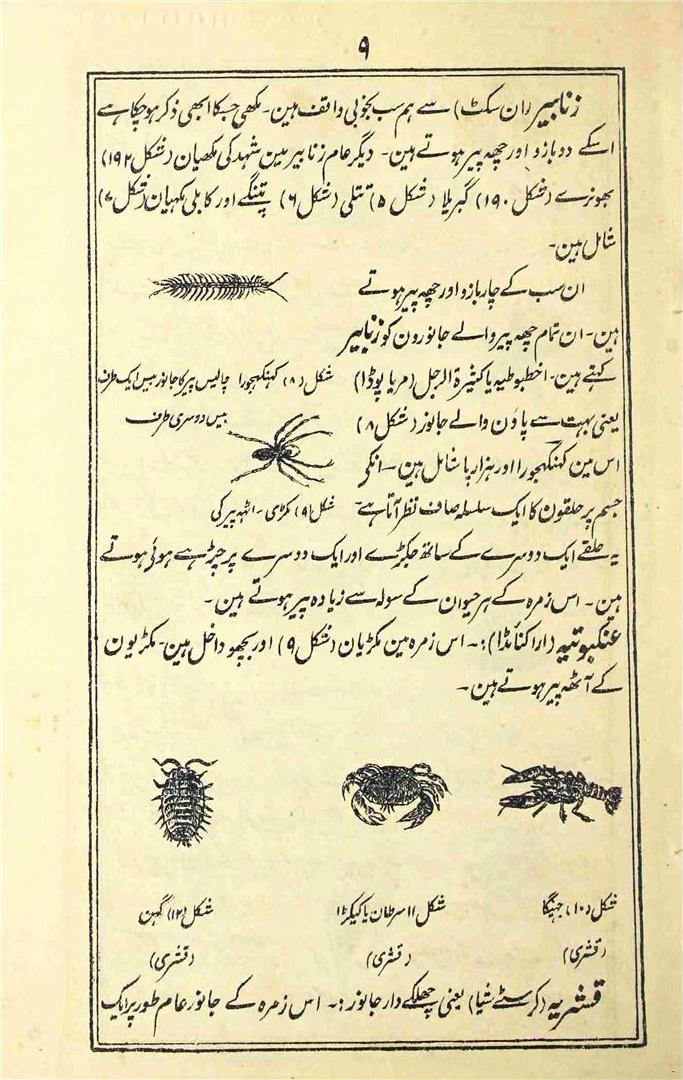 ۹
زنابیر (ان سکٹ) سے ہم سب بخوبی واقف ہین۔ مکھی جسکا ابھی ذکر ہوچکا ہے
اسکے دو بازو اور چھہ پیر ہوتے ہین۔ دیگر عام زنابیر مین شہد کی مکھیان (شکل ۱۹۲)
بھونرے (شکل ۱۹۰) گبریلا (شکل ۵) تتلی (شکل ۶) پتنگے اور کابلی مکھیان (شکل ۷)
شامل ہین۔
ان سب کے چار بازو اور چھہ پیر ہوتے
ہین۔ ان تمام چھہ پیر والے جانورون کو زنابیر
کہتے ہین۔ اخطبوطیہ یا کثیرۃ الرجل (مریاپوڈا)
شکل (۸) کہنکھجورا چالیس پیر کا جانور بیس ایک طرف
بیس دوسری طرف
یعنی بہت سے پاؤن والے جانور (شکل ۸)
اس مین کہنکھجورا اور ہزارپا شامل ہین۔ انکے
جسم پر حلقون کا ایک سلسلہ صاف نظر آتا ہے۔
شکل (۹) مکڑی۔ اٹھہ پیر کی
یہ حلقے ایک دوسرے کے ساتھ جکڑے اور ایک دوسرے پر چڑھے ہوئے ہوتے
ہین۔ اس زمرہ کے ہر حیوان کے سولہ سے زیادہ پیر ہوتے ہین۔
عنکبوتیہ (اراکنائڈا):۔ اس زمرہ مین مکڑیان (شکل ۹) اور بچھو داخل ہین۔ مکڑیون
کے آٹھہ پیر ہوتے ہین۔
شکل (۱۰) جھینگا
(قشری)
شکل ۱۱ سرطان یا کیکڑا
(قشری)
شکل (۱۲) گھن
(قشری)
قشریہ (کرسٹے شیا) یعنی چھلکے دار جانور:۔ اس زمرہ کے جانور عام طور پر ایک